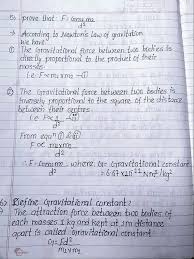 5) prove that F = Gm1m2/d²
→ According to Newton's law of gravitation
we have:
① The Gravitational force between two bodies is
directly proportional to the product of their
masses.
i.e F∝m1×m2 —①
② The Gravitational force between two bodies is
inversely proportional to the square of the distance
between their centres.
i.e F∝1/d² —②
From eqn ① & ②
F ∝ m1m2/d²
∴ F = Gm1m2/d² where, G = Gravitational constant
= 6.67×10⁻¹¹ Nm²/kg²
6) Define Gravitational constant?
→ The attraction force between two bodies of
each masses 1kg and kept at 1m distance
apart is called gravitational constant.
G = Fd²/m1×m2